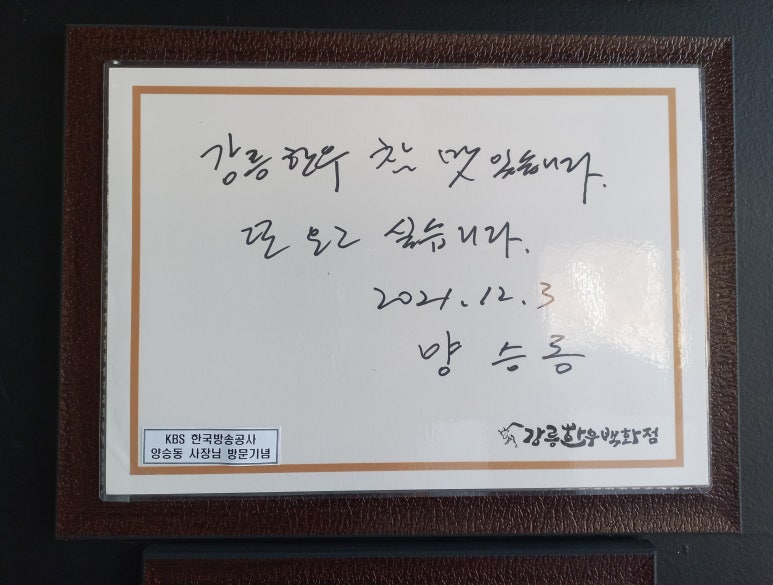 강릉한우 참 맛 있습니다.
또 오고 싶습니다.
2021.12.3
양 승 동
KBS 한국방송공사
양승동 사장님 방문기념
강릉한우백화점